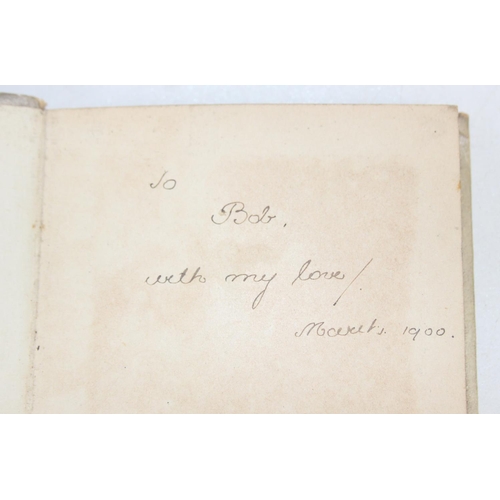 To
Bob,
with my love/.
March. 1900.